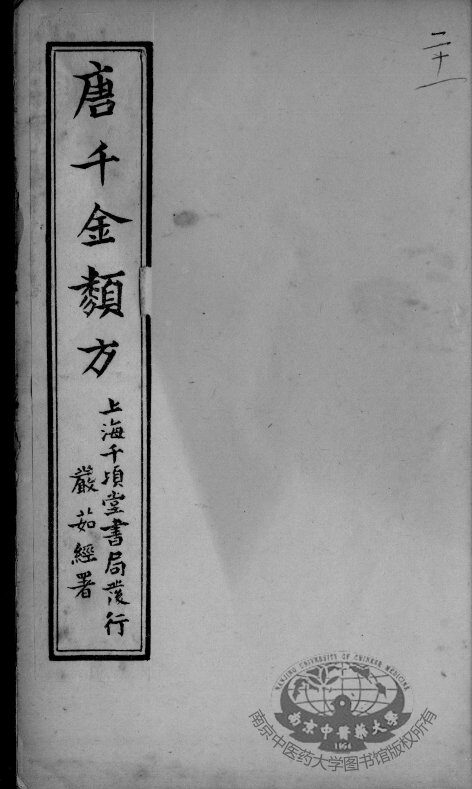 二十一
唐千金類方
上海千頃堂書局發行
嚴茹經署
NANJING UNIVERSITY OF CHINESE MEDICINE
南京中醫藥大學
1954
南京中医药大学图书馆版权所有